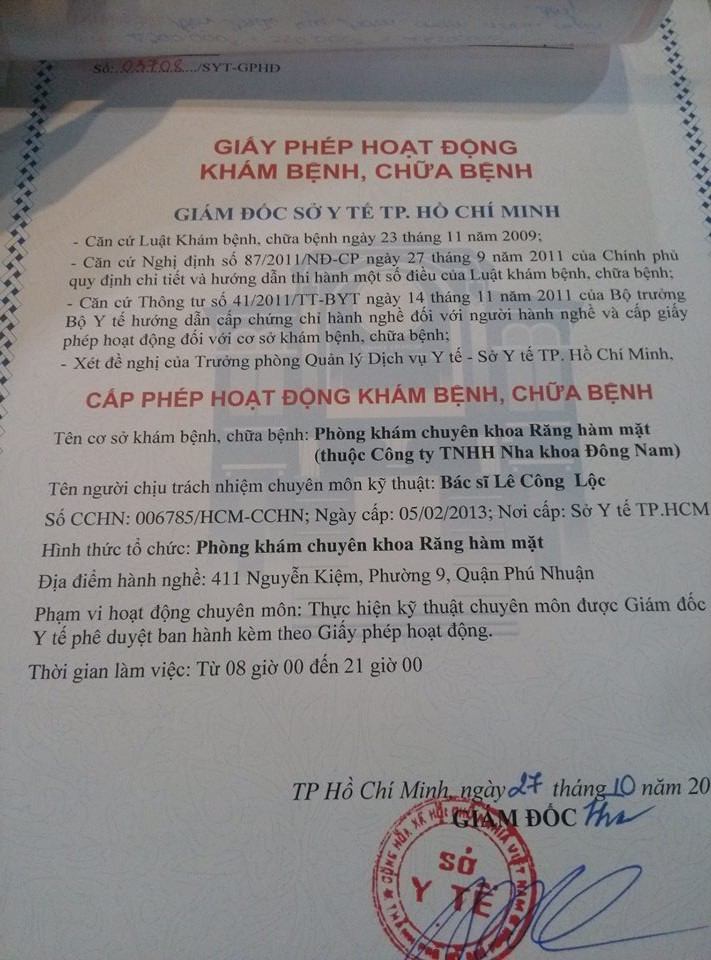 Số: 03708 /SYT-GPHĐ
GIẤY PHÉP HOẠT ĐỘNG
KHÁM BỆNH, CHỮA BỆNH
GIÁM ĐỐC SỞ Y TẾ TP. HỒ CHÍ MINH
- Căn cứ Luật Khám bệnh, chữa bệnh ngày 23 tháng 11 năm 2009;
- Căn cứ Nghị định số 87/2011/NĐ-CP ngày 27 tháng 9 năm 2011 của Chính phủ
quy định chi tiết và hướng dẫn thi hành một số điều của Luật khám bệnh, chữa bệnh;
- Căn cứ Thông tư số 41/2011/TT-BYT ngày 14 tháng 11 năm 2011 của Bộ trưởng
Bộ Y tế hướng dẫn cấp chứng chỉ hành nghề đối với người hành nghề và cấp giấy
phép hoạt động đối với cơ sở khám bệnh, chữa bệnh;
- Xét đề nghị của Trưởng phòng Quản lý Dịch vụ Y tế - Sở Y tế TP. Hồ Chí Minh,
CẤP PHÉP HOẠT ĐỘNG KHÁM BỆNH, CHỮA BỆNH
Tên cơ sở khám bệnh, chữa bệnh: Phòng khám chuyên khoa Răng hàm mặt
(thuộc Công ty TNHH Nha khoa Đông Nam)
Tên người chịu trách nhiệm chuyên môn kỹ thuật: Bác sĩ Lê Công Lộc
Số CCHN: 006785/HCM-CCHN; Ngày cấp: 05/02/2013; Nơi cấp: Sở Y tế TP.HCM
Hình thức tổ chức: Phòng khám chuyên khoa Răng hàm mặt
Địa điểm hành nghề: 411 Nguyễn Kiệm, Phường 9, Quận Phú Nhuận
Phạm vi hoạt động chuyên môn: Thực hiện kỹ thuật chuyên môn được Giám đốc
Y tế phê duyệt ban hành kèm theo Giấy phép hoạt động.
Thời gian làm việc: Từ 08 giờ 00 đến 21 giờ 00
TP Hồ Chí Minh, ngày 27 tháng 10 năm 20
GIÁM ĐỐC
CỘNG HÒA XÃ HỘI CHỦ NGHĨA VIỆT NAM
SỞ
Y TẾ